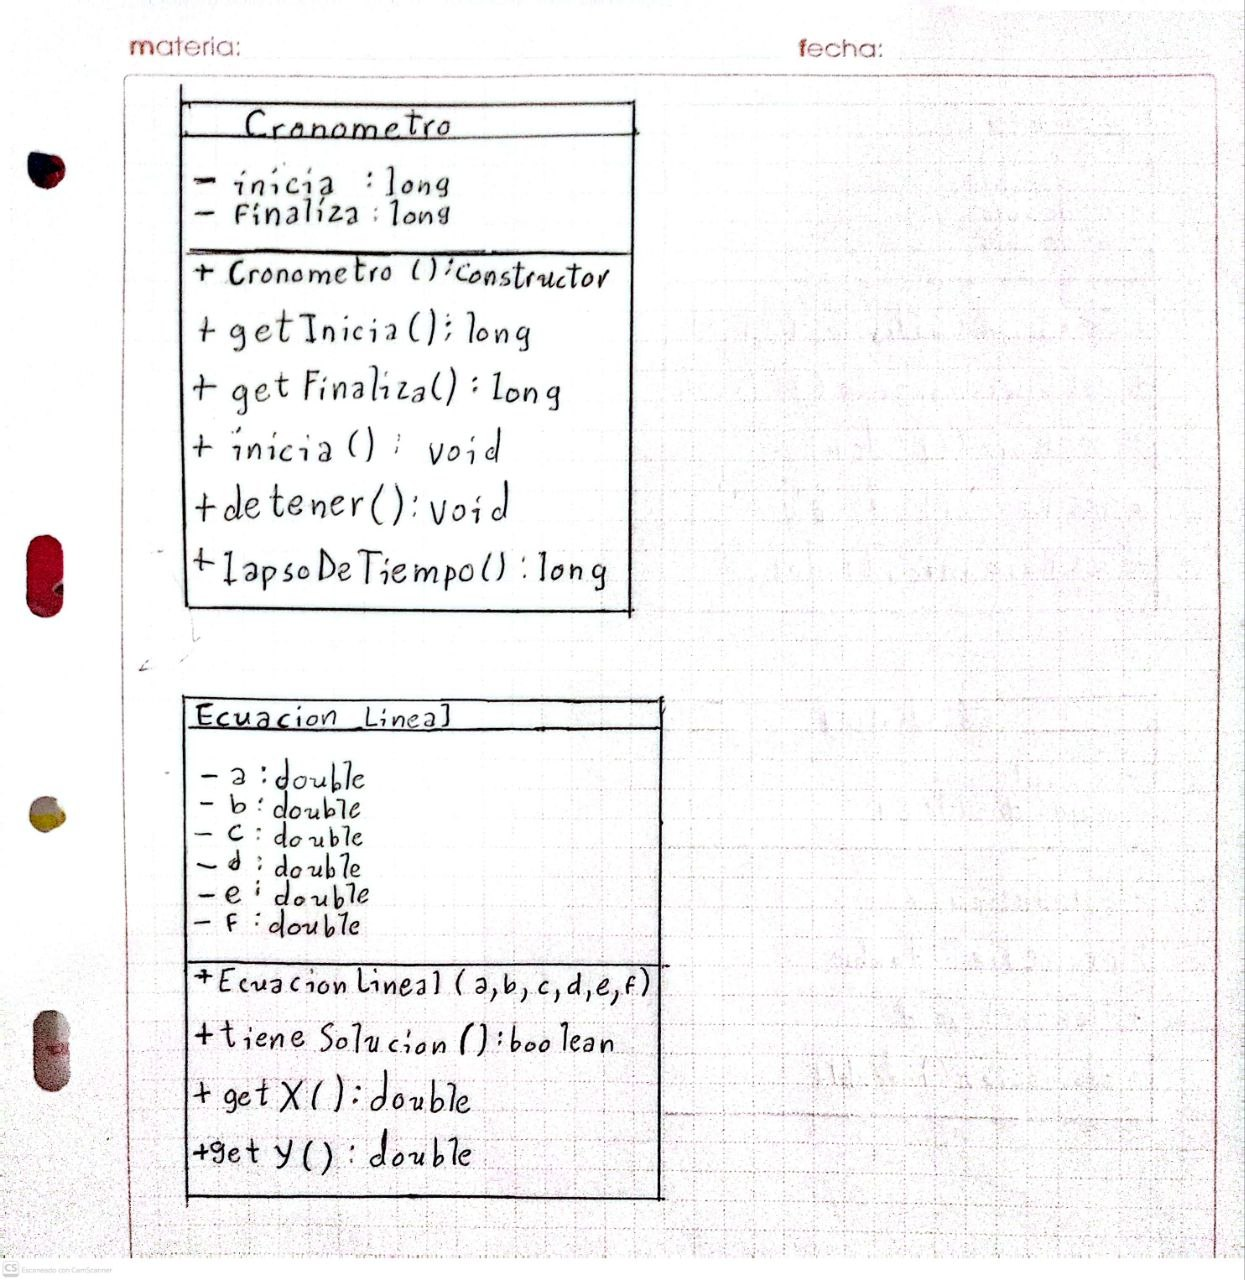 materia:
fecha:
Cronometro
- inicia : long
- Finaliza : long
+ Cronometro () : Constructor
+ getInicia() : long
+ get Finaliza() : long
+ inicia () : void
+ detener() : void
+ lapsoDeTiempo() : long
Ecuacion Lineal
- a : double
- b : double
- c : double
- d : double
- e : double
- f : double
+ Ecuacion Lineal (a, b, c, d, e, f)
+ tiene Solucion () : boolean
+ get X() : double
+ get Y() : double
CS Escaneado con CamScanner